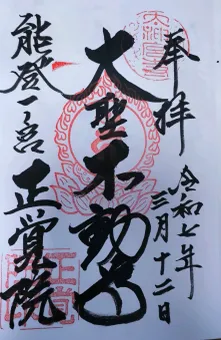 奉拝
令和七年
三月十二日
大聖不動尊
能登一宮
正覚院